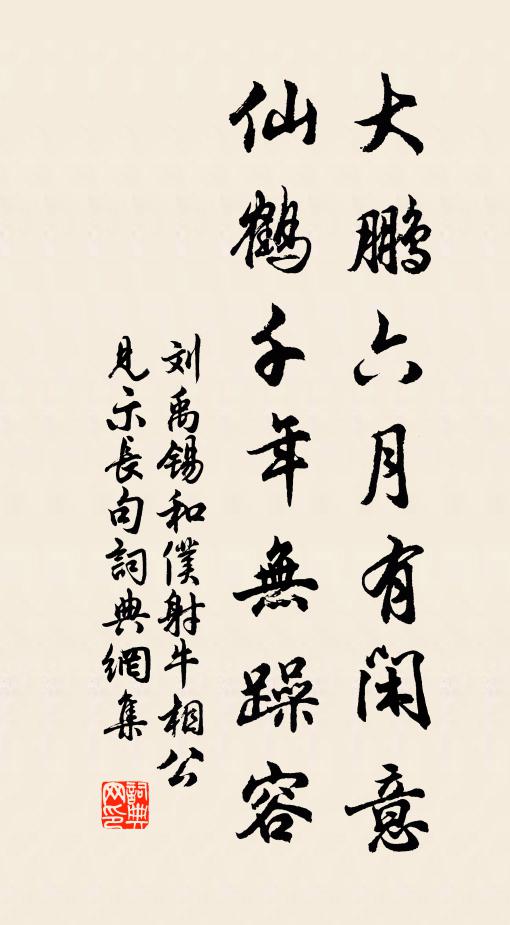 大鹏六月有闲意
仙鹤千年無躁容
刘禹锡和僕射牛相公
见示長句詞典網集
詞典网印